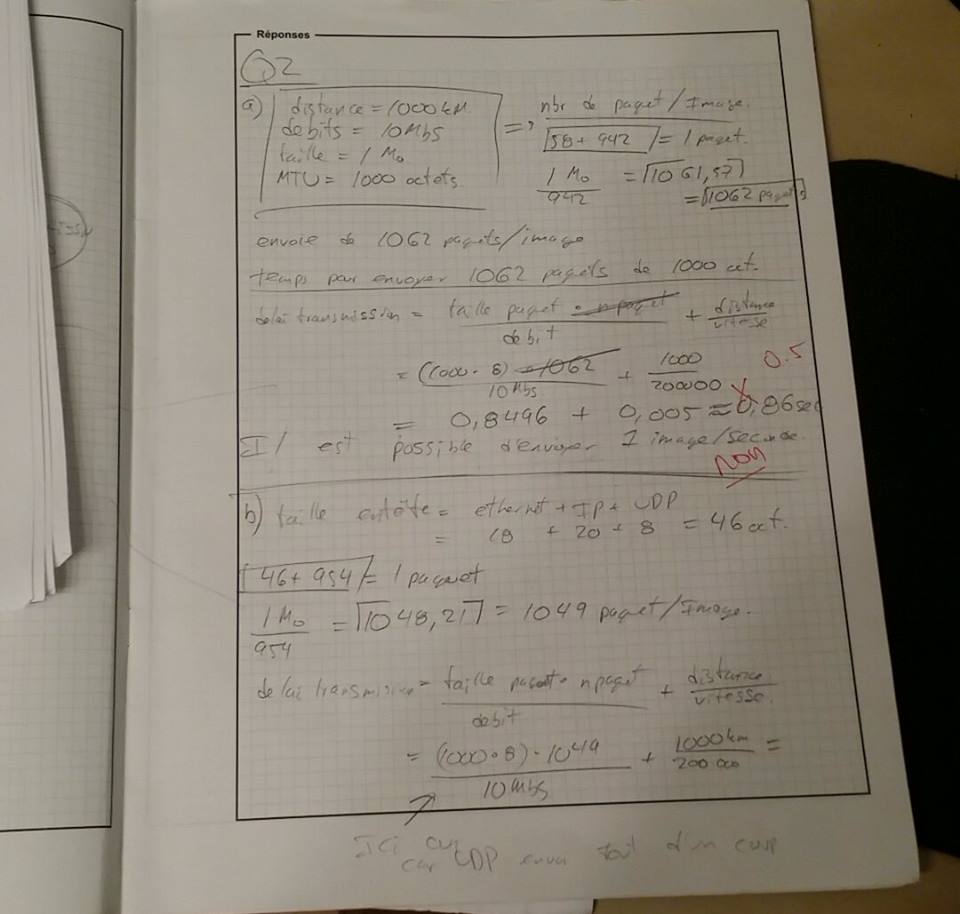 Réponses
Q2
a) distance = 1000 kM
debits = 10 Mbs
taille = 1 Mo
MTU = 1000 octets
=> nbr de paquet / Image.
58 + 942 = 1 paquet.
1 Mo / 942 = ⌈1061,57⌉
= 1062 paquets
envoie de 1062 paquets/image
temps pour envoyer 1062 paquets de 1000 oct.
delai transmission = taille paquet • n paquet / debit + distance / vitesse
= (1000 • 8) • 1062 / 10 Mbs + 1000 / 200000
0.5
= 0,8496 + 0,005 ≈ 0,86 sec
Il est possible d'envoyer 1 image/seconde.
NON
b) taille entête = ethernet + IP + UDP
= 18 + 20 + 8 = 46 oct.
46 + 954 = 1 paquet
1 Mo / 954 = ⌈1048,21⌉ = 1049 paquet/Image.
delai transmission = taille paquet • n paquet / debit + distance / vitesse.
= (1000 • 8) • 1049 / 10 Mbs + 1000 km / 200 000 =
Ici
car UDP tout d'un coup